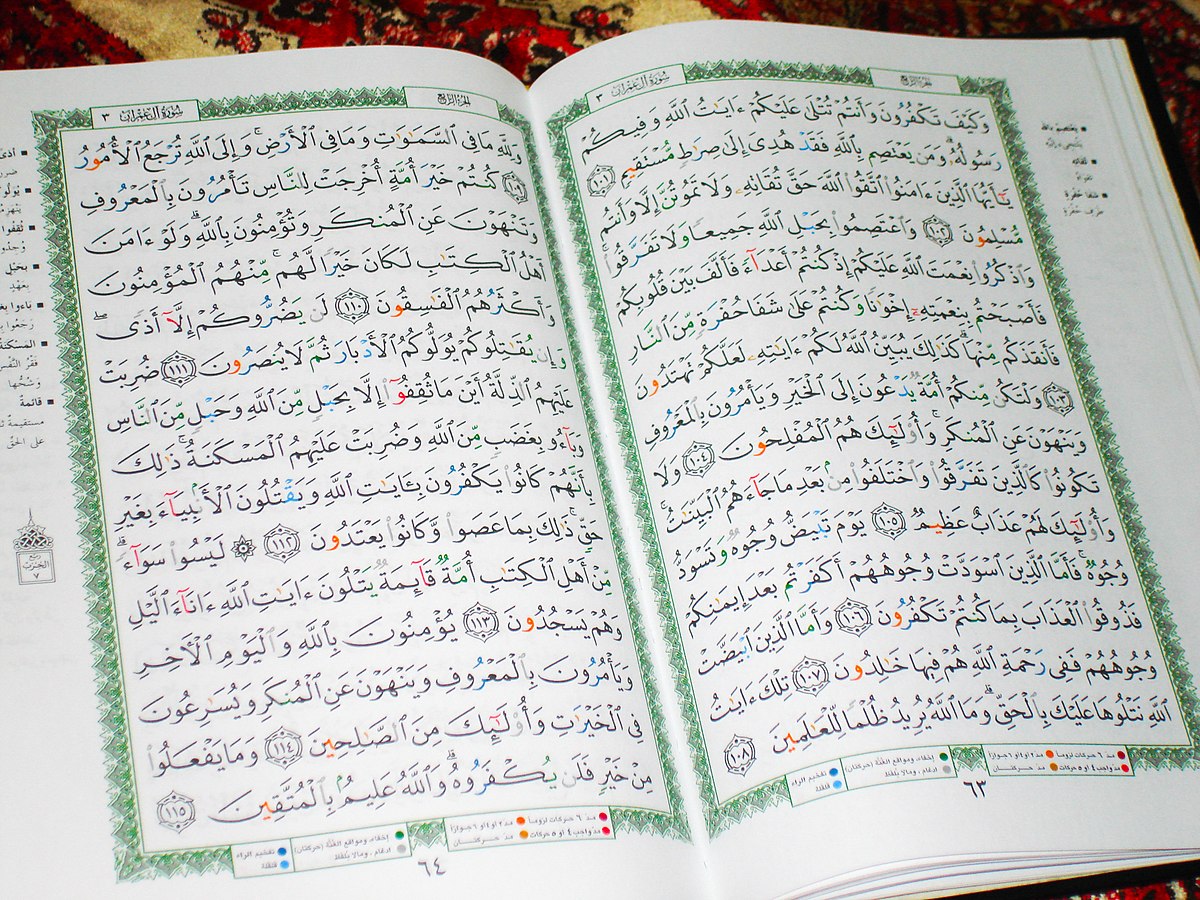 سورة آل عمران ٣
الجزء الرابع
وَكَيْفَ تَكْفُرُونَ وَأَنتُمْ تُتْلَىٰ عَلَيْكُمْ ءَايَٰتُ ٱللَّهِ وَفِيكُمْ
رَسُولُهُۥ ۗ وَمَن يَعْتَصِم بِٱللَّهِ فَقَدْ هُدِىَ إِلَىٰ صِرَٰطٍ مُّسْتَقِيمٍ ١٠١
يَٰٓأَيُّهَا ٱلَّذِينَ ءَامَنُوا۟ ٱتَّقُوا۟ ٱللَّهَ حَقَّ تُقَاتِهِۦ وَلَا تَمُوتُنَّ إِلَّا وَأَنتُم
مُّسْلِمُونَ ١٠٢ وَٱعْتَصِمُوا۟ بِحَبْلِ ٱللَّهِ جَمِيعًا وَلَا تَفَرَّقُوا۟ ۚ
وَٱذْكُرُوا۟ نِعْمَتَ ٱللَّهِ عَلَيْكُمْ إِذْ كُنتُمْ أَعْدَآءً فَأَلَّفَ بَيْنَ قُلُوبِكُمْ
فَأَصْبَحْتُم بِنِعْمَتِهِۦٓ إِخْوَٰنًا وَكُنتُمْ عَلَىٰ شَفَا حُفْرَةٍ مِّنَ ٱلنَّارِ
فَأَنقَذَكُم مِّنْهَا ۗ كَذَٰلِكَ يُبَيِّنُ ٱللَّهُ لَكُمْ ءَايَٰتِهِۦ لَعَلَّكُمْ تَهْتَدُونَ
١٠٣ وَلْتَكُن مِّنكُمْ أُمَّةٌ يَدْعُونَ إِلَى ٱلْخَيْرِ وَيَأْمُرُونَ بِٱلْمَعْرُوفِ
وَيَنْهَوْنَ عَنِ ٱلْمُنكَرِ ۚ وَأُو۟لَٰٓئِكَ هُمُ ٱلْمُفْلِحُونَ ١٠٤ وَلَا
تَكُونُوا۟ كَٱلَّذِينَ تَفَرَّقُوا۟ وَٱخْتَلَفُوا۟ مِنۢ بَعْدِ مَا جَآءَهُمُ ٱلْبَيِّنَٰتُ ۚ
وَأُو۟لَٰٓئِكَ لَهُمْ عَذَابٌ عَظِيمٌ ١٠٥ يَوْمَ تَبْيَضُّ وُجُوهٌ وَتَسْوَدُّ
وُجُوهٌ ۚ فَأَمَّا ٱلَّذِينَ ٱسْوَدَّتْ وُجُوهُهُمْ أَكَفَرْتُم بَعْدَ إِيمَٰنِكُمْ
فَذُوقُوا۟ ٱلْعَذَابَ بِمَا كُنتُمْ تَكْفُرُونَ ١٠٦ وَأَمَّا ٱلَّذِينَ ٱبْيَضَّتْ
وُجُوهُهُمْ فَفِى رَحْمَةِ ٱللَّهِ هُمْ فِيهَا خَٰلِدُونَ ١٠٧ تِلْكَ ءَايَٰتُ
ٱللَّهِ نَتْلُوهَا عَلَيْكَ بِٱلْحَقِّ ۗ وَمَا ٱللَّهُ يُرِيدُ ظُلْمًا لِّلْعَٰلَمِينَ ١٠٨
مدّ ٦ حركات لزوماً مدّ ٢ أو ٤ أو ٦ جوازاً
مدّ واجب ٤ أو ٥ حركات مدّ حركتان
إخفاء، ومواقع الغنّة (حركتان) تفخيم الراء
إدغام، وما لا يُلفظ قلقلة
٦٣
الجزء الرابع
سورة آل عمران ٣
وَلِلَّهِ مَا فِى ٱلسَّمَٰوَٰتِ وَمَا فِى ٱلْأَرْضِ ۚ وَإِلَى ٱللَّهِ تُرْجَعُ ٱلْأُمُورُ
١٠٩ كُنتُمْ خَيْرَ أُمَّةٍ أُخْرِجَتْ لِلنَّاسِ تَأْمُرُونَ بِٱلْمَعْرُوفِ
وَتَنْهَوْنَ عَنِ ٱلْمُنكَرِ وَتُؤْمِنُونَ بِٱللَّهِ ۗ وَلَوْ ءَامَنَ
أَهْلُ ٱلْكِتَٰبِ لَكَانَ خَيْرًا لَّهُم ۚ مِّنْهُمُ ٱلْمُؤْمِنُونَ
وَأَكْثَرُهُمُ ٱلْفَٰسِقُونَ ١١٠ لَن يَضُرُّوكُمْ إِلَّآ أَذًى ۖ
وَإِن يُقَٰتِلُوكُمْ يُوَلُّوكُمُ ٱلْأَدْبَارَ ثُمَّ لَا يُنصَرُونَ ١١١ ضُرِبَتْ
عَلَيْهِمُ ٱلذِّلَّةُ أَيْنَ مَا ثُقِفُوٓا۟ إِلَّا بِحَبْلٍ مِّنَ ٱللَّهِ وَحَبْلٍ مِّنَ ٱلنَّاسِ
وَبَآءُو بِغَضَبٍ مِّنَ ٱللَّهِ وَضُرِبَتْ عَلَيْهِمُ ٱلْمَسْكَنَةُ ۚ ذَٰلِكَ
بِأَنَّهُمْ كَانُوا۟ يَكْفُرُونَ بِـَٔايَٰتِ ٱللَّهِ وَيَقْتُلُونَ ٱلْأَنۢبِيَآءَ بِغَيْرِ
حَقٍّ ۚ ذَٰلِكَ بِمَا عَصَوا۟ وَّكَانُوا۟ يَعْتَدُونَ ١١٢ ۞ لَيْسُوا۟ سَوَآءً ۗ
مِّنْ أَهْلِ ٱلْكِتَٰبِ أُمَّةٌ قَآئِمَةٌ يَتْلُونَ ءَايَٰتِ ٱللَّهِ ءَانَآءَ ٱلَّيْلِ
وَهُمْ يَسْجُدُونَ ١١٣ يُؤْمِنُونَ بِٱللَّهِ وَٱلْيَوْمِ ٱلْءَاخِرِ
وَيَأْمُرُونَ بِٱلْمَعْرُوفِ وَيَنْهَوْنَ عَنِ ٱلْمُنكَرِ وَيُسَٰرِعُونَ
فِى ٱلْخَيْرَٰتِ وَأُو۟لَٰٓئِكَ مِنَ ٱلصَّٰلِحِينَ ١١٤ وَمَا يَفْعَلُوا۟
مِنْ خَيْرٍ فَلَن يُكْفَرُوهُ ۗ وَٱللَّهُ عَلِيمٌۢ بِٱلْمُتَّقِينَ ١١٥
مدّ ٦ حركات لزوماً مدّ ٢ أو ٤ أو ٦ جوازاً
مدّ واجب ٤ أو ٥ حركات مدّ حركتان
إخفاء، ومواقع الغنّة (حركتان) تفخيم الراء
إدغام، وما لا يُلفظ قلقلة
٦٤
ربع
الحزب
٧